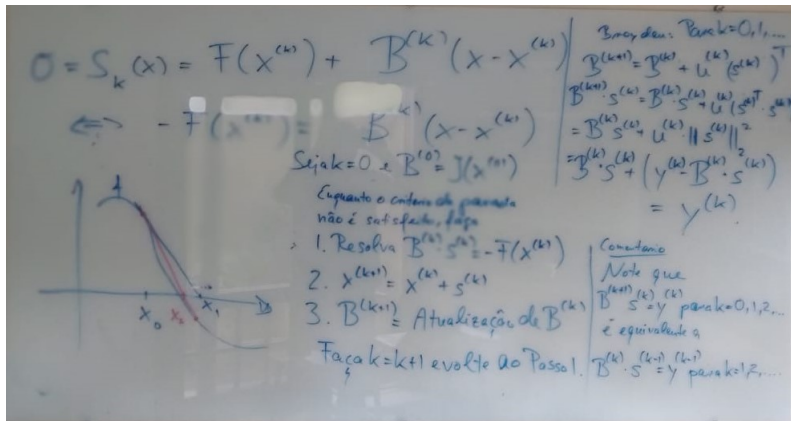 0 = S_k(x) = F(x^(k)) + B^(k)(x - x^(k))
⇔ -F(x^(k)) = B^(k)(x - x^(k))
Seja k=0 e B^(0) = J(x^(0))
Enquanto o criterio de parada
não é satisfeito, faça
1. Resolva B^(k) · s^(k) = -F(x^(k))
2. x^(k+1) = x^(k) + s^(k)
3. B^(k+1) = Atualização de B^(k)
Faça k=k+1 e volte ao Passo 1.
x_0 x_2 x_1
Broyden: Para k=0,1,...
B^(k+1) = B^(k) + u^(k) (s^(k))^T
B^(k+1) · s^(k) = B^(k) · s^(k) + u^(k) (s^(k)T · s^(k))
= B^(k) s^(k) + u^(k) · ||s^(k)||^2
= B^(k) · s^(k) + (y^(k) - B^(k) · s^(k))
= y^(k)
Comentario
Note que
B^(k+1) s^(k) = y^(k) para k=0,1,2,...
é equivalente a
B^(k) · s^(k-1) = y^(k-1) para k=1,2,...